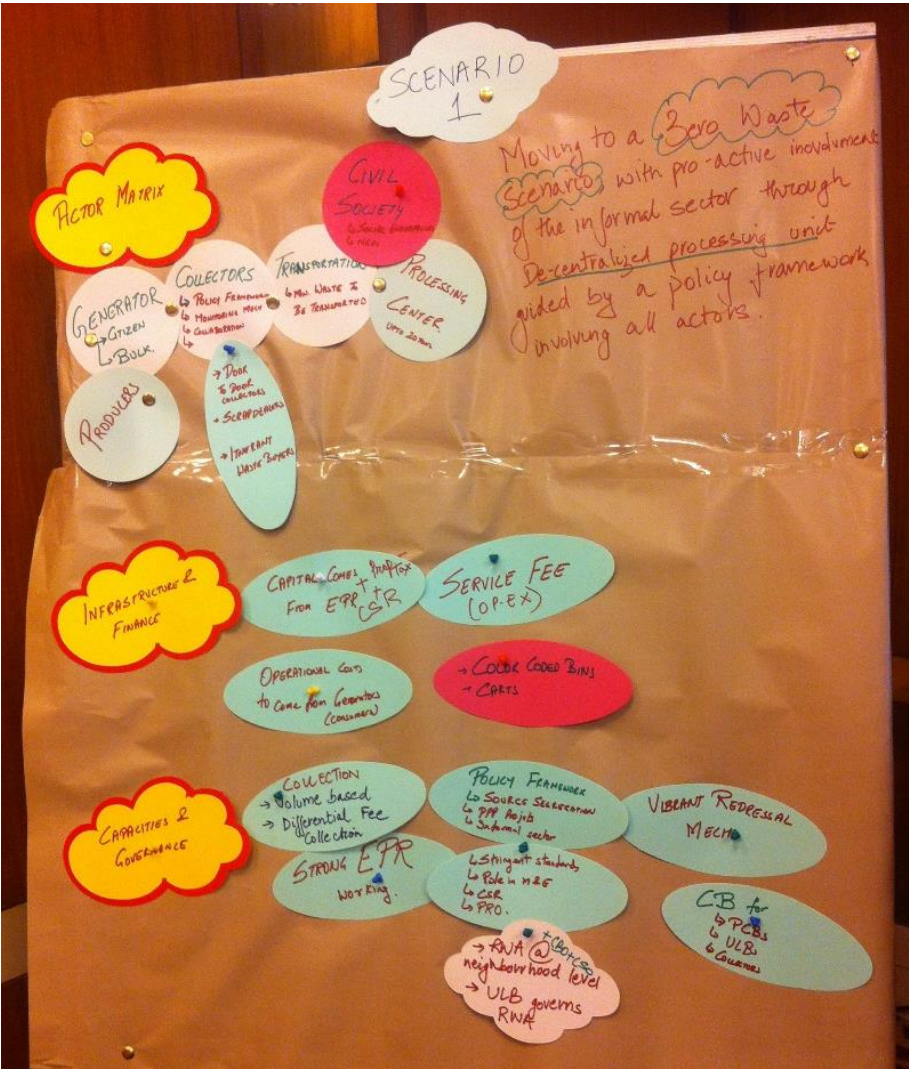 SCENARIO
1
Moving to a Zero Waste
Scenario with pro-active inovdument
of the informal sector through
Decentralized processing unit
guided by a policy framework
involving all actors.
ACTOR MATRIX
CIVIL
SOCIETY
↳ NGOs
GENERATOR
→ CITIZEN
↳ BULK.
COLLECTORS
↳ POLICY FRAMEWORK
↳ MONITORING MECH
↳ COLLABORATION
↳
TRANSPORTATION
↳ MIN. WASTE TO
BE TRANSPORTED
PROCESSING
CENTER
UPTO
PRODUCERS
→ DOOR
TO DOOR
COLLECTORS
→ SCRAPDEALERS
→ ITINERANT
WASTE BUYERS
INFRASTRUCTURE &
FINANCE
CAPITAL COMES
FROM EPR + PropTax
+ CSR
SERVICE FEE
(OP-EX)
OPERATIONAL COSTS
to come from Generators
(consumers)
→ COLOR CODED BINS
→ CARTS
CAPACITIES &
GOVERNANCE
COLLECTION
→ Volume based
→ Differential Fee
Collection
STRONG EPR
working.
POLICY FRAMEWORK
↳ SOURCE SEGREGATION
↳ PPP
↳ Informal sector
↳ Stringent standards
↳ Role in M&E
↳ CSR
↳ PRO.
VIBRANT REDRESSAL
MECH
CB for
↳ PCBs
↳ ULBs
↳ COLLECTORS
→ RWA @ + CBO +
neighbourhood level
→ ULB governs
RWA